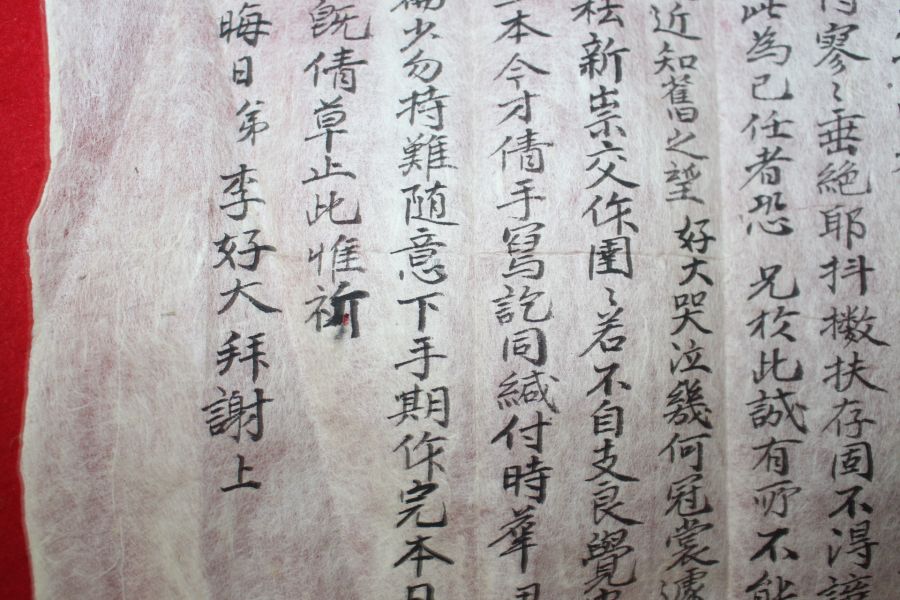 寥〻垂絶耶抖擻扶存固不淂
此為己任者恐 兄於此誠有所不能
近知舊之望 好大哭泣幾何冠裳遽
新崇交作圍〻若不自支良覺
本今才倩手寫訖同緘付時華
少勿持難随意下手期作完本日
既倩草止此惟祈
晦日弟 李好大 拜謝上